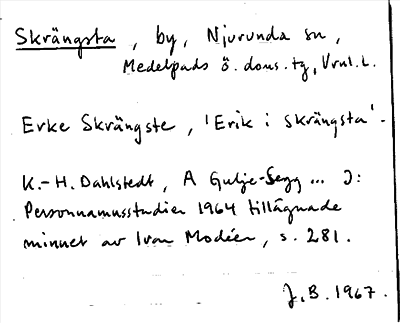 Skrängsta, by, Njurunda sn,
Medelpads ö. doms. tg, Vrnl. l.
Erke Skrängste, 'Erik i Skrängsta'.
K.-H. Dahlstedt, A Gulje-Segg ... I:
Personnamnsstudier 1964 tillägnade
minnet av Ivar Modéer, s. 281.
J.B. 1967.